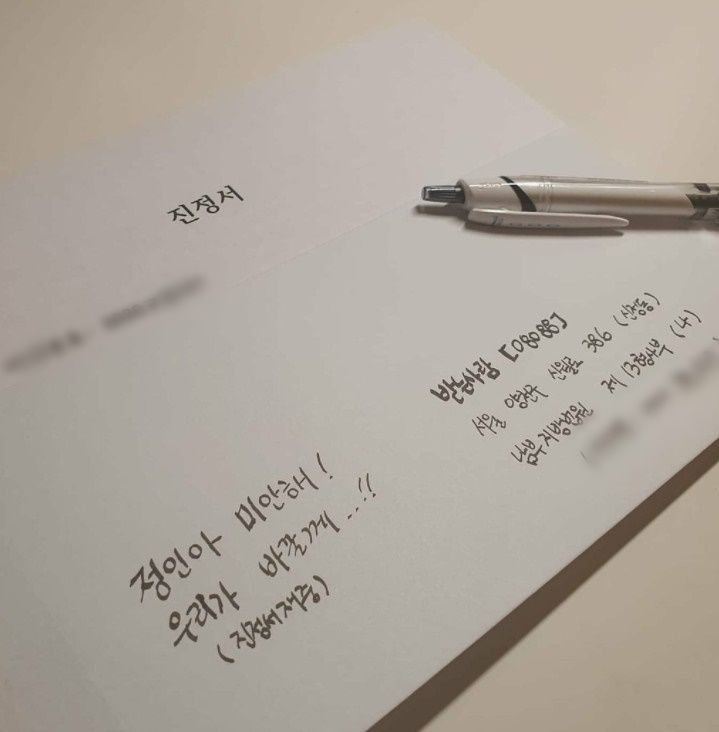 진정서
받는사람 [08088]
서울 양천구 신월로 386 (신정동)
남부지방법원 제13형사부 (나)
정인아 미안해!
우리가 바꿀게..!!
(진정서재중)